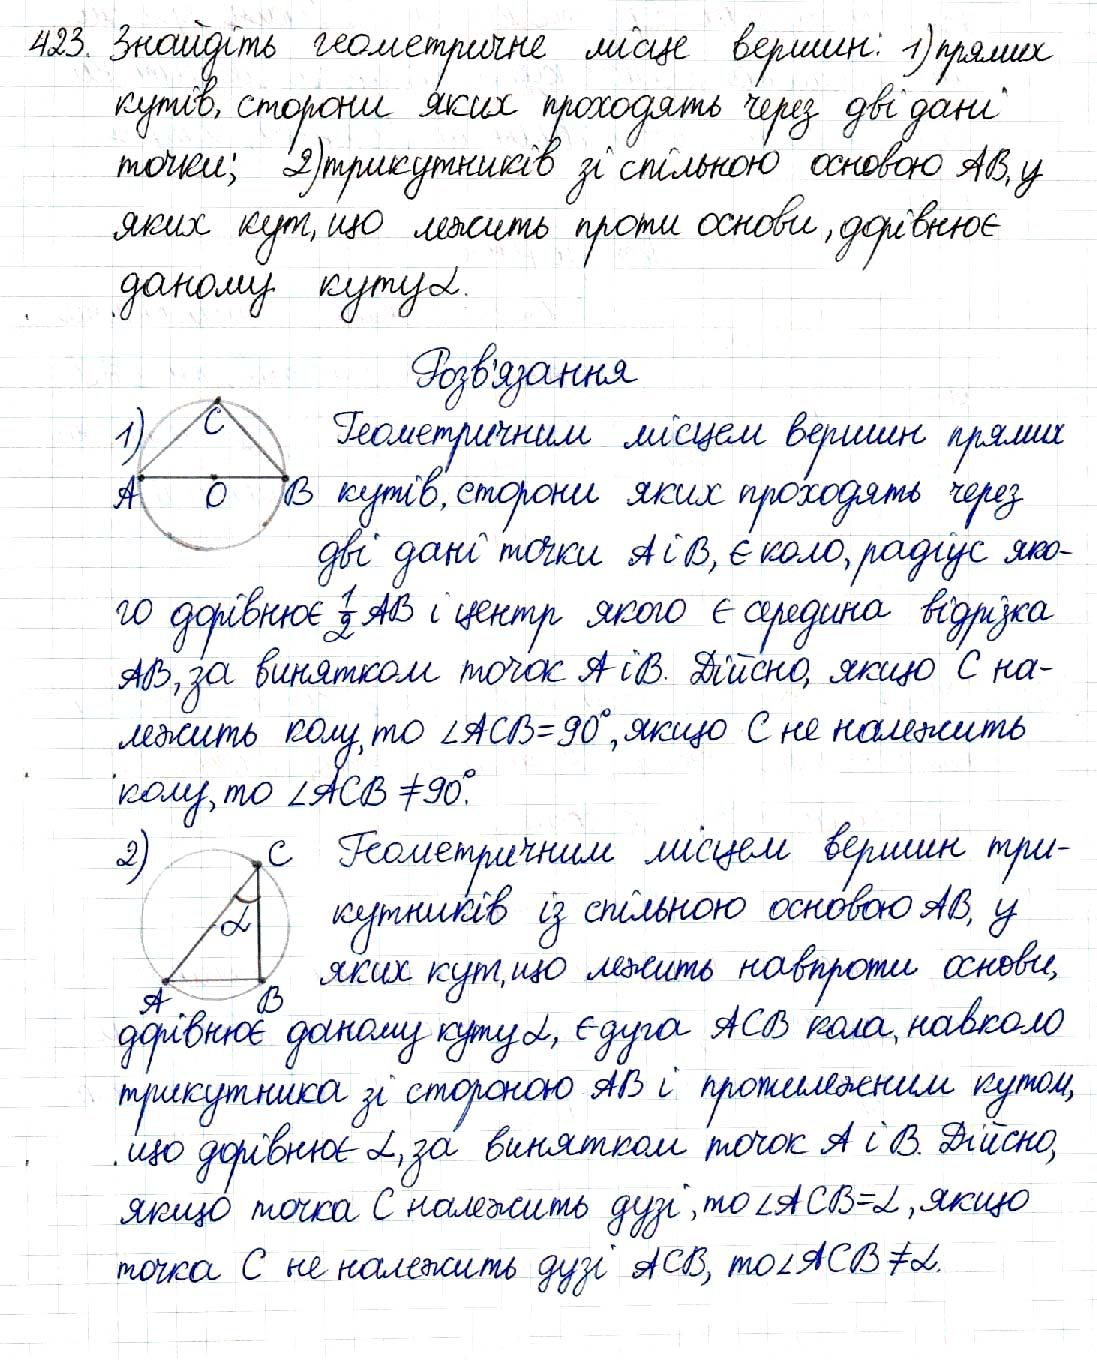 423. Знайдіть геометричне місце вершин: 1) прямих
кутів, сторони яких проходять через дві дані
точки; 2) трикутників зі спільною основою AB, у
яких кут, що лежить проти основи, дорівнює
даному куту α.
Розв'язання
1) Геометричним місцем вершин прямих
C
A O B
кутів, сторони яких проходять через
дві дані точки A і B, є коло, радіус яко-
го дорівнює 1/2 AB і центр якого є середина відрізка
AB, за винятком точок A і B. Дійсно, якщо C на-
лежить колу, то ∠ACB = 90°, якщо C не належить
колу, то ∠ACB ≠ 90°.
2) Геометричним місцем вершин три-
C
α
A B
кутників із спільною основою AB, у
яких кут, що лежить навпроти основи,
дорівнює даному куту α, є дуга ACB кола, навколо
трикутника зі стороною AB і протилежним кутом,
що дорівнює α, за винятком точок A і B. Дійсно,
якщо точка C належить дузі, то ∠ACB = α, якщо
точка C не належить дузі ACB, то ∠ACB ≠ α.